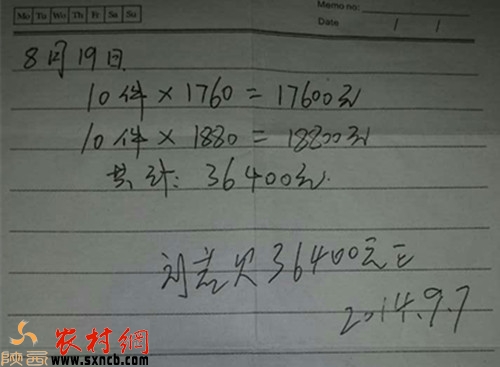 Mo Tu We Th Fr Sa Su
Memo no:
Date / /
8月19日
10件×1760=17600元
10件×1880=18800元
共计:36400元
欠36400元正
2014.9.7
陕西农村網
www.sxncb.com